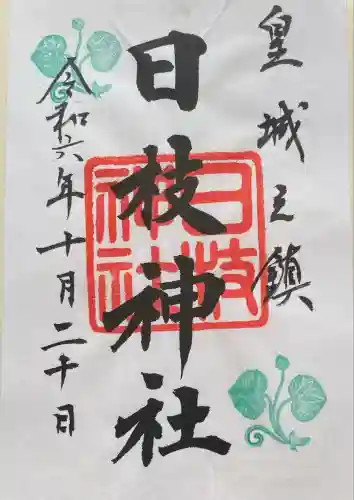 皇城之鎮
日枝神社
日枝神社
令和六年十月二十日